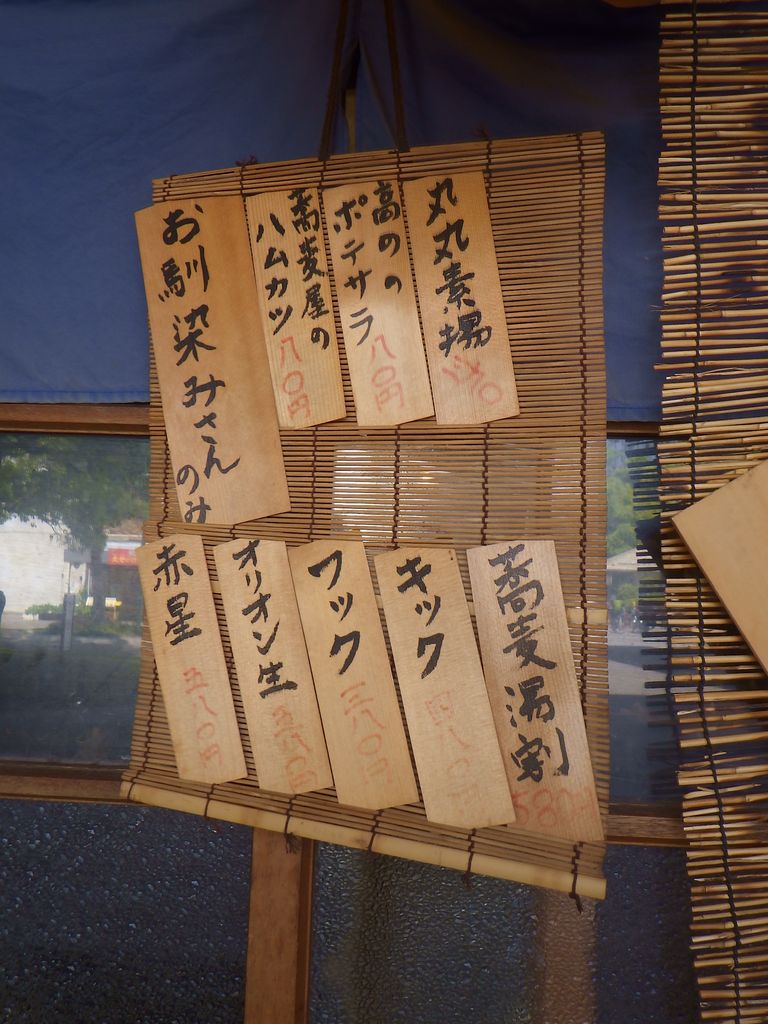 お馴染みさんのみ
蕎麦屋の
ハムカツ
八〇円
高のの
ポテサラ
八〇円
丸丸素揚
赤星
五八〇円
オリオン生
五八〇円
フック
三八〇円
キック
四八〇円
蕎麦湯割
580円